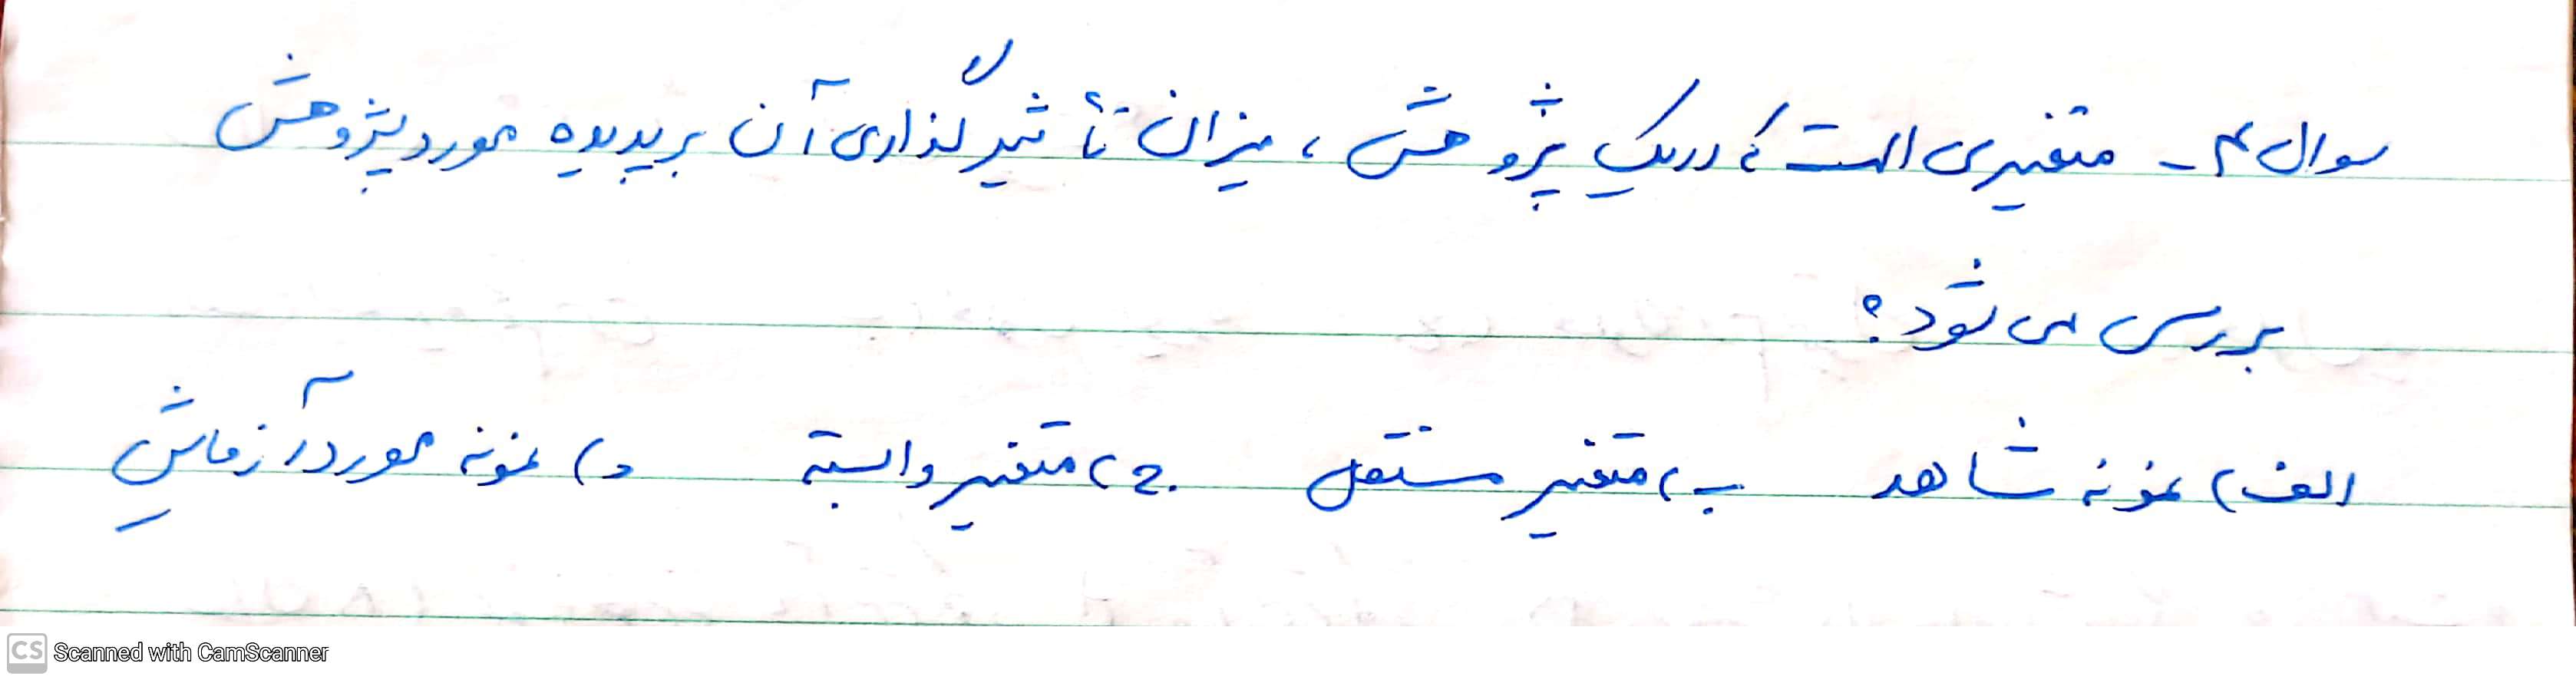 سوال ۴ ـ متغیری است که در یک پژوهش ، میزان تأثیرگذاری آن بر پدیده مورد پژوهش
بررسی می شود ؟
الف) نمونه شاهد ب) متغیر مستقل ج) متغیر وابسته د) نمونه مورد آزمایش
CS Scanned with CamScanner